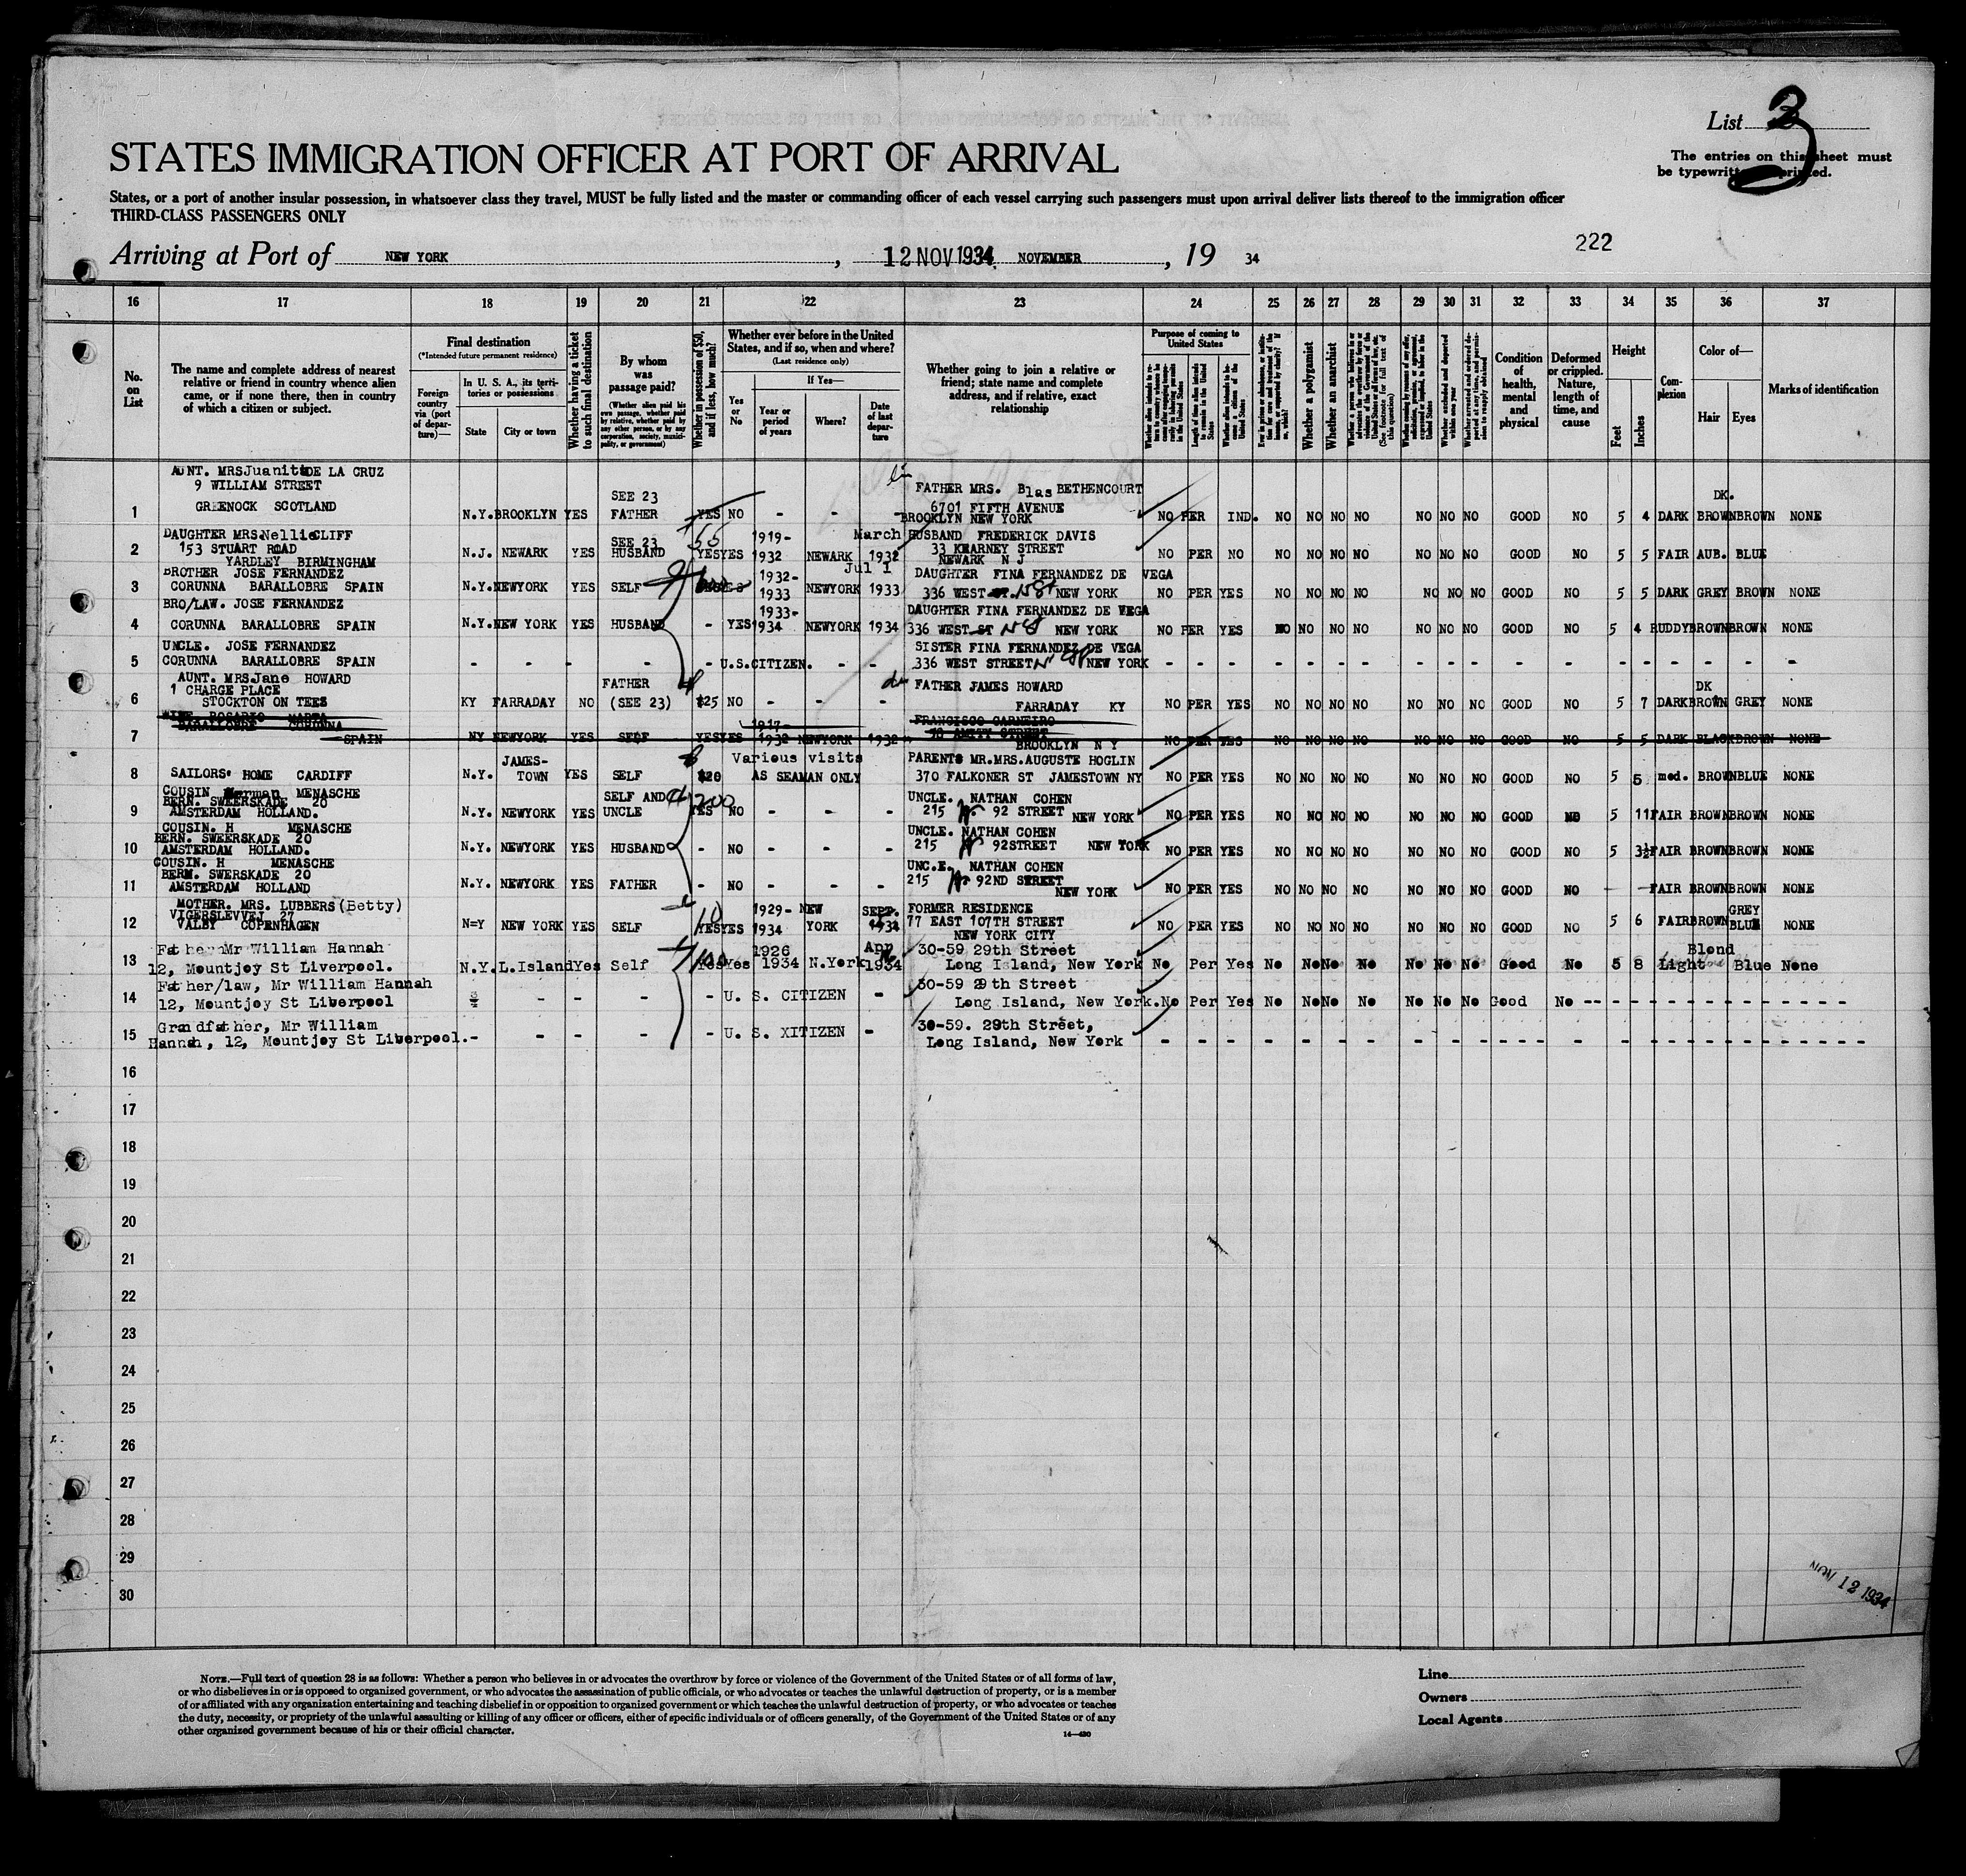 List 3
STATES IMMIGRATION OFFICER AT PORT OF ARRIVAL
The entries on this sheet must
be typewritten or printed.
States, or a port of another insular possession, in whatsoever class they travel, MUST be fully listed and the master or commanding officer of each vessel carrying such passengers must upon arrival deliver lists thereof to the immigration officer
THIRD-CLASS PASSENGERS ONLY
222
Arriving at Port of NEW YORK , 12 NOV 1934 NOVEMBER , 19 34
16 17 18 19 20 21 22 23 24 25 26 27 28 29 30 31 32 33 34 35 36 37
No. on List
The name and complete address of nearest relative or friend in country whence alien came, or if none there, then in country of which a citizen or subject.
Final destination
(*Intended future permanent residence)
Foreign country via (port of departure)—
In U. S. A., its territories or possessions
State
City or town
Whether having a ticket to such final destination
By whom was passage paid?
(Whether alien paid his own passage, whether paid by relative, whether paid by any other person, or by any corporation, society, municipality, or government)
Whether in possession of $50, and if less, how much?
Whether ever before in the United States, and if so, when and where?
(Last residence only)
Yes or No
If Yes—
Year or period of years
Where?
Date of last departure
Whether going to join a relative or friend; state name and complete address, and if relative, exact relationship
Purpose of coming to United States
Length of time alien intends to remain in the United States
Whether alien intends to become a citizen of the United States
Whether a polygamist
Whether an anarchist
(See footnote for full text of this question)
Condition of health, mental and physical
Deformed or crippled. Nature, length of time, and cause
Height
Feet
Inches
Complexion
Color of—
Hair
Eyes
Marks of identification
AUNT. MRS Juanita DE LA CRUZ
9 WILLIAM STREET
GREENOCK SCOTLAND
1 N.Y. BROOKLYN YES SEE 23 FATHER YES NO - - - FATHER MRS. Blas BETHENCOURT
6701 FIFTH AVENUE
BROOKLYN NEW YORK
NO PER IND. NO NO NO NO NO NO NO GOOD NO 5 4 DARK DK. BROWN BROWN NONE
DAUGHTER MRS Nellie CLIFF
153 STUART ROAD
YARDLEY BIRMINGHAM
2 N.J. NEWARK YES SEE 23 HUSBAND 55 YES YES 1919-1932 NEWARK March 1932 HUSBAND FREDERICK DAVIS
33 KEARNEY STREET
NEWARK N J
NO PER NO NO NO NO NO NO NO NO GOOD NO 5 5 FAIR AUB. BLUE
BROTHER JOSE FERNANDEZ
CORUNNA BARALLOBRE SPAIN
3 N.Y. NEWYORK YES SELF 1932-1933 NEWYORK Jul 1 1933 DAUGHTER FINA FERNANDEZ DE VEGA
336 WEST ST. NEW YORK
NO PER YES NO NO NO GOOD NO 5 5 DARK GREY BROWN NONE
BRO/LAW. JOSE FERNANDEZ
CORUNNA BARALLOBRE SPAIN
4 N.Y. NEW YORK YES HUSBAND - YES 1933-1934 NEWYORK 1934 DAUGHTER FINA FERNANDEZ DE VEGA
336 WEST ST NEW YORK
NO PER YES NO NO NO NO NO NO NO GOOD NO 5 4 RUDDY BROWN BROWN NONE
UNCLE. JOSE FERNANDEZ
CORUNNA BARALLOBRE SPAIN
5 - - - - - U.S.CITIZEN. - - SISTER FINA FERNANDEZ DE VEGA
336 WEST STREET NEW YORK
AUNT. MRS Jane HOWARD
1 CHARGE PLACE
STOCKTON ON TEES
6 KY FARRADAY NO FATHER (SEE 23) $25 NO - - - FATHER JAMES HOWARD
FARRADAY KY
NO PER YES NO NO NO NO NO NO NO GOOD NO 5 7 DARK DK BROWN GREY NONE
WIFE ROSARIO MARTA
BARALLOBRE CORUNNA
SPAIN
7 NY NEWYORK YES SELF YES YES 1917-1932 NEWYORK 1932 FRANCISCO CARNEIRO
78 AMITY STREET
BROOKLYN N Y
NO PER YES NO NO NO NO NO NO NO GOOD NO 5 5 DARK BLACK BROWN NONE
8 SAILORS' HOME CARDIFF N.Y. JAMES-TOWN YES SELF $20 Various visits AS SEAMAN ONLY PARENTS MR.MRS.AUGUSTE HOGLIN
370 FALKONER ST JAMESTOWN NY
NO PER YES NO NO NO NO NO NO NO GOOD NO 5 5 med. BROWN BLUE NONE
COUSIN Herman MENASCHE
BERN. SWEERSKADE 20
AMSTERDAM HOLLAND.
9 N.Y. NEWYORK YES SELF AND UNCLE 200 YES NO - - - UNCLE. NATHAN COHEN
215 W. 92 STREET NEW YORK
NO PER YES NO NO NO NO NO NO NO GOOD NO 5 11 FAIR BROWN BROWN NONE
COUSIN. H MENASCHE
BERN. SWEERSKADE 20
AMSTERDAM HOLLAND.
10 N.Y. NEWYORK YES HUSBAND - NO - - - UNCLE. NATHAN COHEN
215 W 92STREET NEW YORK
NO PER YES NO NO NO NO NO NO NO GOOD NO 5 3½ FAIR BROWN BROWN NONE
COUSIN. H MENASCHE
BERN. SWERSKADE 20
AMSTERDAM HOLLAND
11 N.Y. NEWYORK YES FATHER - NO - - - UNC.E. NATHAN COHEN
215 W. 92ND STREET
NEW YORK
NO PER YES NO NO NO NO NO NO NO GOOD NO - - FAIR BROWN BROWN NONE
MOTHER. MRS. LUBBERS (Betty)
VIGERSLEVVEJ 27
VALBY COPENHAGEN
12 N=Y NEW YORK YES SELF 10 YES YES 1929-1934 NEW YORK SEPT. 1934 FORMER RESIDENCE
77 EAST 107TH STREET
NEW YORK CITY
NO PER YES NO NO NO NO NO NO NO GOOD NO 5 6 FAIR BROWN GREY BLUE NONE
Father Mr William Hannah
12, Mountjoy St Liverpool.
13 N.Y. L.Island Yes Self 100 Yes Yes 1926 1934 N.York App 1934 30-59 29th Street
Long Island, New York
No Per Yes No No No No No No No Good No 5 8 Light Blond Blue None
Father/law, Mr William Hannah
12, Mountjoy St Liverpool
14 - - - - - U. S. CITIZEN - 30-59 29th Street
Long Island, New York.
No Per Yes No No No No No No No Good No
Grandfather, Mr William
Hannah, 12, Mountjoy St Liverpool.
15 - - - - - U. S. XITIZEN - 30-59. 29th Street,
Long Island, New York
16
17
18
19
20
21
22
23
24
25
26
27
28
29
30
NOV 12 1934
NOTE.—Full text of question 28 is as follows: Whether a person who believes in or advocates the overthrow by force or violence of the Government of the United States or of all forms of law,
or who disbelieves in or is opposed to organized government, or who advocates the assassination of public officials, or who advocates or teaches the unlawful destruction of property, or is a member
of or affiliated with any organization entertaining and teaching disbelief in or opposition to organized government or which teaches the unlawful destruction of property, or who advocates or teaches
the duty, necessity, or propriety of the unlawful assaulting or killing of any officer or officers, either of specific individuals or of officers generally, of the Government of the United States or of any
other organized government because of his or their official character.
14—430
Line
Owners
Local Agents